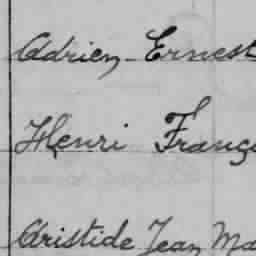 Adrien Ernest
Henri Franç
Aristide Jean Ma